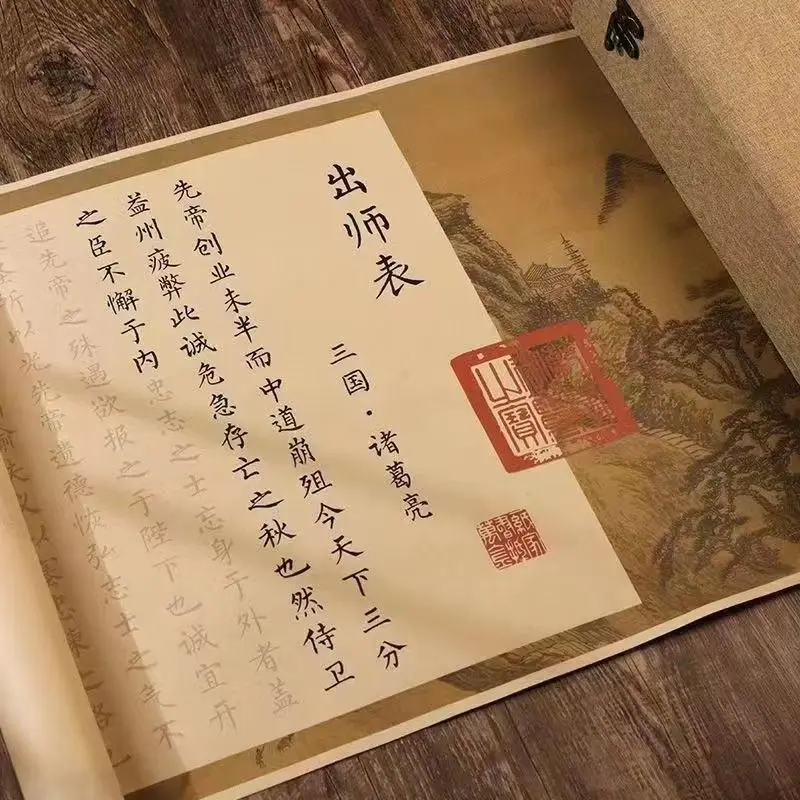 出师表
三国·诸葛亮
先帝创业未半而中道崩殂今天下三分
益州疲弊此诚危急存亡之秋也然侍卫
之臣不懈于内忠志之士忘身于外者盖
追先帝之殊遇欲报之于陛下也诚宜开
以光先帝遗德恢弘志士之气不
喻失义以塞忠谏之路也
之寶